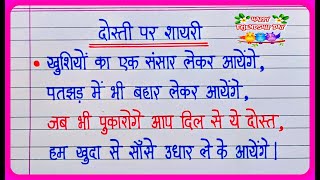 HAPPY
FRIENDSHIP DAY
दोस्ती पर शायरी
• खुशियों का एक संसार लेकर आयेंगे,
पतझड़ में भी बहार लेकर आयेंगे,
जब भी पुकारोगे आप दिल से ये दोस्त,
हम खुदा से साँसे उधार ले के आयेंगे|